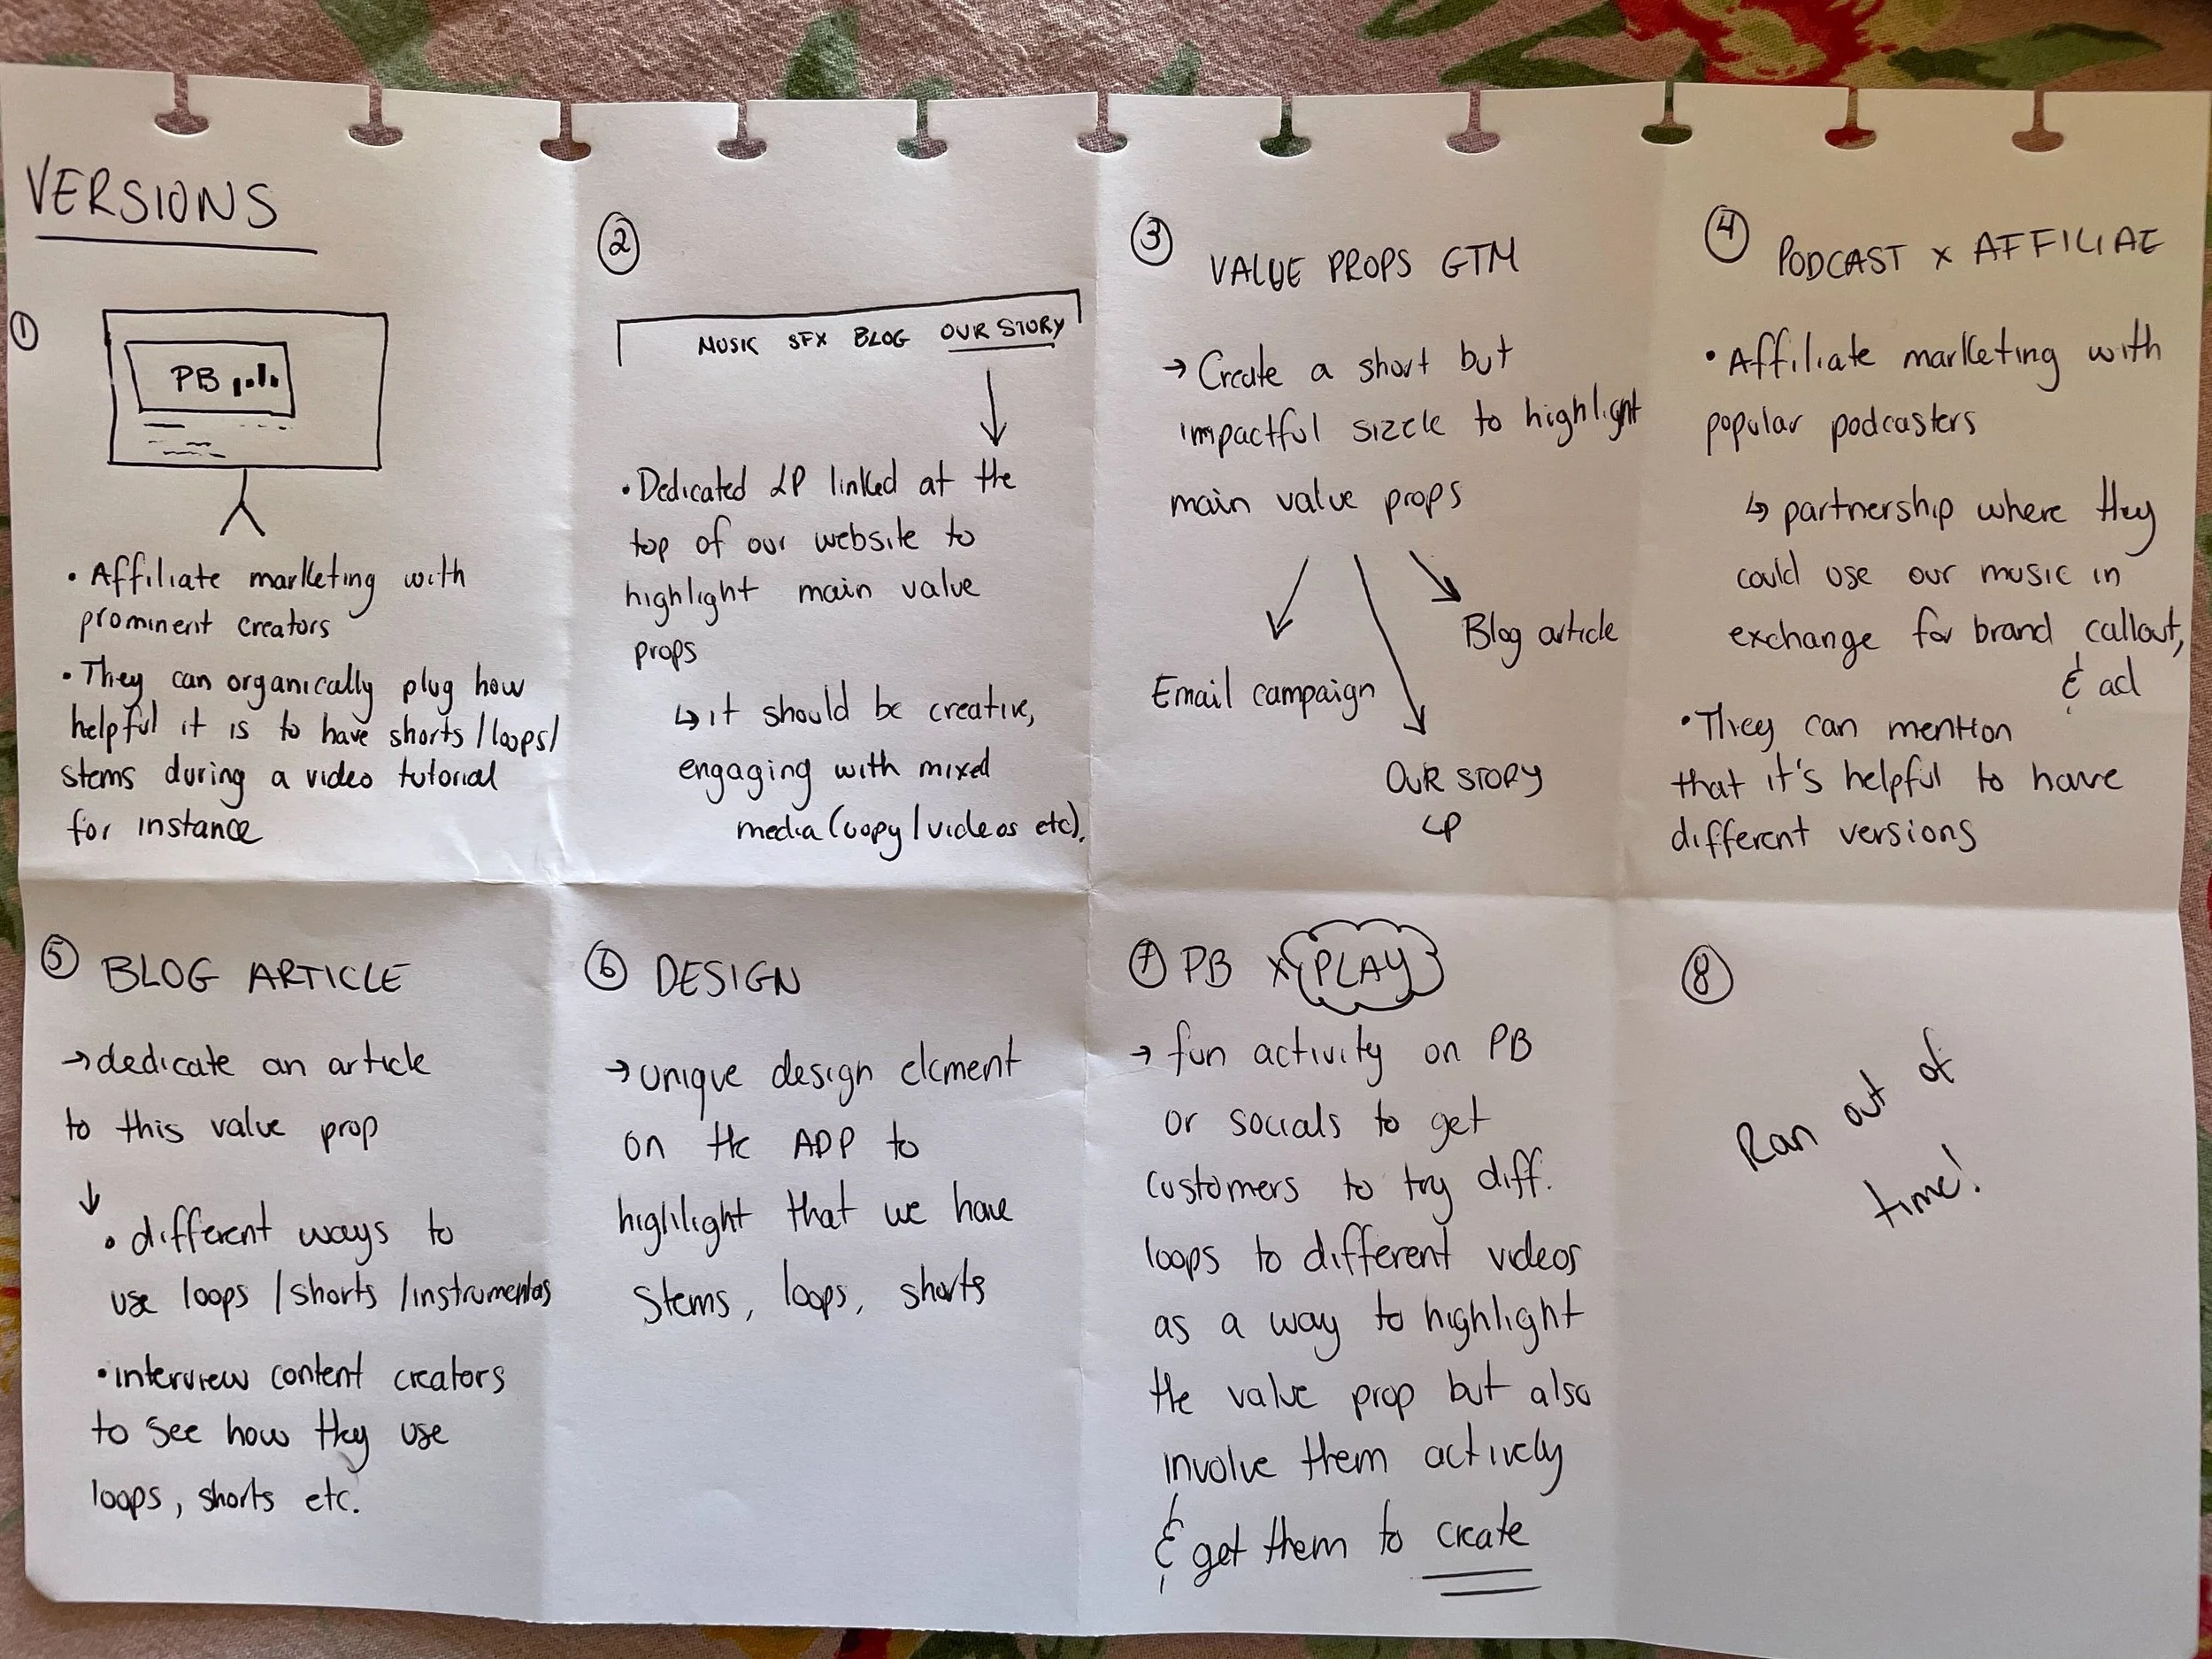 VERSIONS
①
PB
• Affiliate marketing with
prominent creators
• They can organically plug how
helpful it is to have shorts/loops/
stems during a video tutorial
for instance
②
MUSIC SFX BLOG OUR STORY
• Dedicated LP linked at the
top of our website to
highlight main value
props
↳ it should be creative,
engaging with mixed
media (copy/videos etc).
③ VALUE PROPS GTM
→ Create a short but
impactful sizzle to highlight
main value props
Blog article
Email campaign
OUR STORY
LP
④ PODCAST x AFFILIAE
• Affiliate marketing with
popular podcasters
↳ partnership where they
could use our music in
exchange for brand callout,
& ad
• They can mention
that it's helpful to have
different versions
⑤ BLOG ARTICLE
→ dedicate an article
to this value prop
↓
• different ways to
use loops /shorts /instrumentas
• interview content creators
to see how they use
loops, shorts etc.
⑥ DESIGN
→ unique design element
on the APP to
highlight that we have
stems, loops, shorts
⑦ PB x PLAY
→ fun activity on PB
or socials to get
customers to try diff.
loops to different videos
as a way to highlight
the value prop but also
involve them actively
& get them to create
⑧
Ran out of
time!